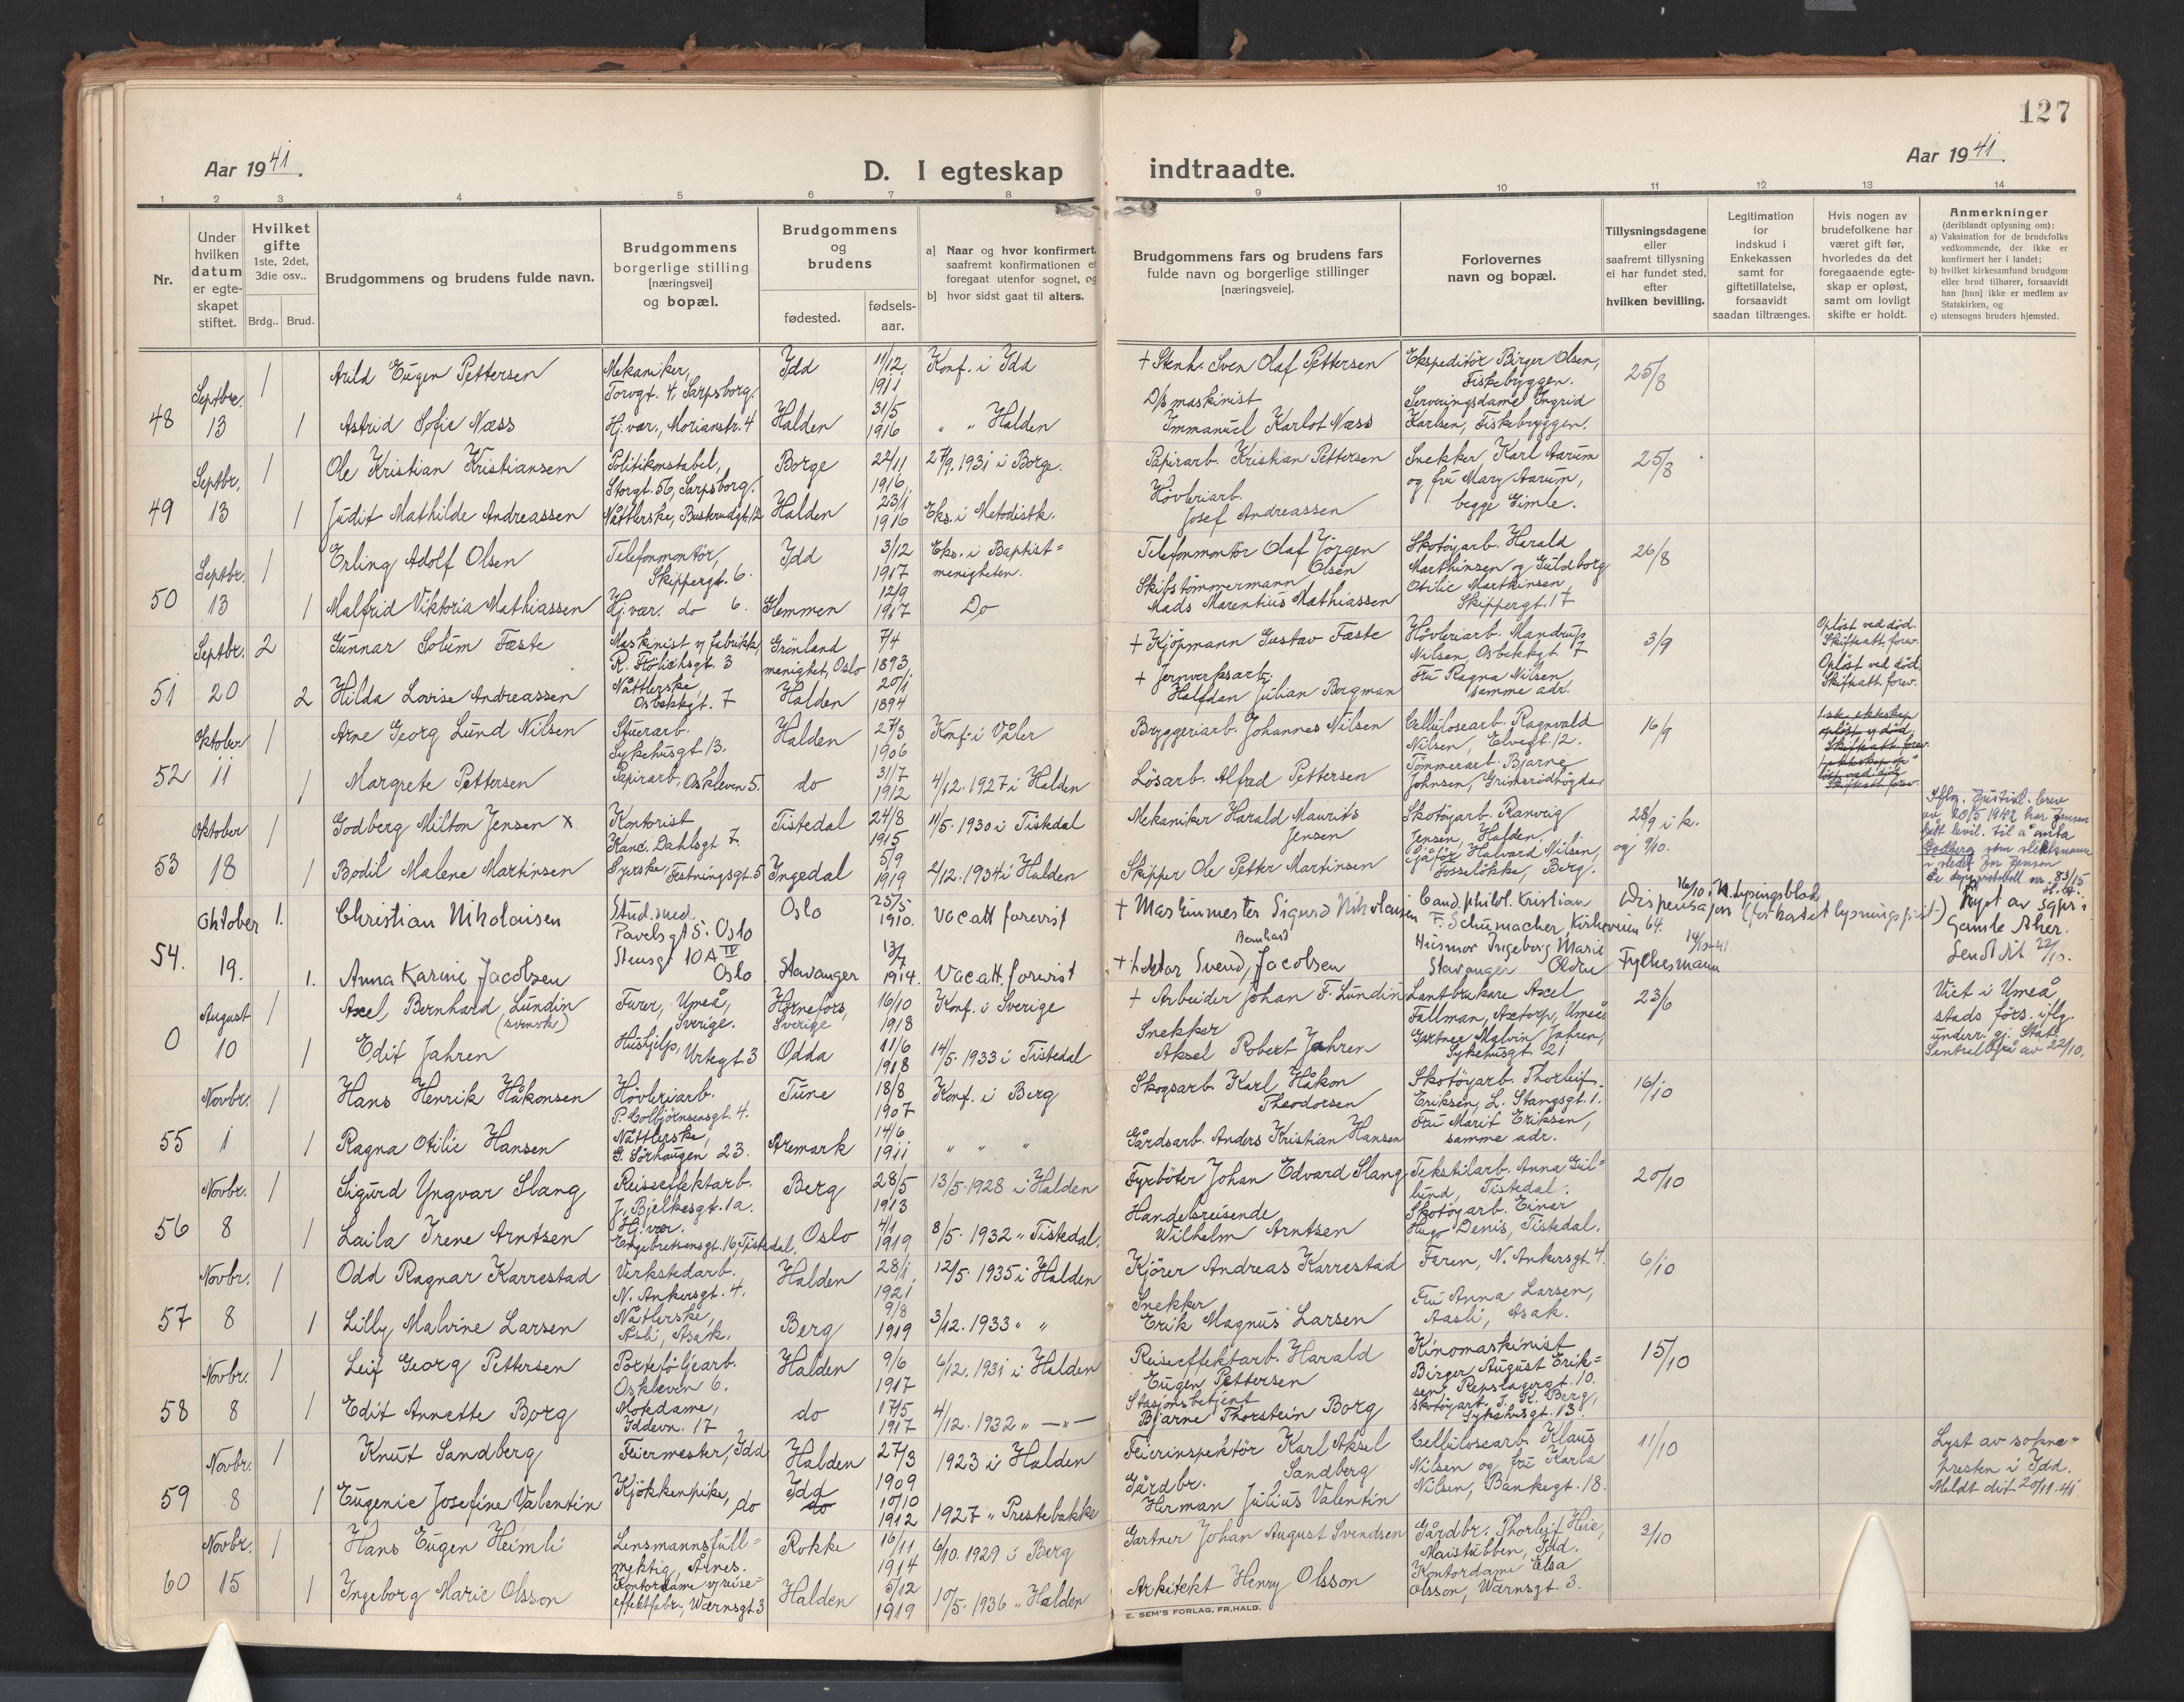 127
Aar 1941.
D. I egteskap indtraadte.
Aar 1941.
1 2 3 4 5 6 7 8 9 10 11 12 13 14
Nr.
Under hvilken datum er egteskapet stiftet.
Hvilket gifte 1ste, 2det, 3die osv..
Brdg.. Brud.
Brudgommens og brudens fulde navn.
Brudgommens borgerlige stilling [næringsvei] og bopæl.
Brudgommens og brudens
fødested.
fødsels-aar.
a] Naar og hvor konfirmert, saafremt konfirmationen ei foregaat utenfor sognet, og
b] hvor sidst gaat til alters.
Brudgommens fars og brudens fars fulde navn og borgerlige stillinger [næringsveie].
Forlovernes navn og bopæl.
Tillysningsdagene eller saafremt tillysning ei har fundet sted, efter hvilken bevilling.
Legitimation for indskud i Enkekassen samt for giftetillatelse, forsaavidt saadan tiltrænges.
Hvis nogen av brudefolkene har været gift før, hvorledes da det foregaaende egteskap er opløst, samt om lovligt skifte er holdt.
Anmerkninger (deriblandt oplysning om):
a) Vaksination for de brudefolks vedkommende, der ikke er konfirmert her i landet;
b) hvilket kirkesamfund brudgom eller brud tilhører, forsaavidt han [hun] ikke er medlem av Statskirken, og
c) utensogns bruders hjemsted.
48 Septbr. 13 1 Arild Eugen Pettersen Mekaniker, Torvgt. 4, Sarpsborg. Idd 11/12 1911 Konf. i Idd + Stenh. Sven Olaf Pettersen Ekspeditör Birger Olsen, Fiskebryggen. 25/8
1 Astrid Sofie Næss Hj. vær., Morianstr. 4 Halden 31/5 1916 " " Halden D/s maskinist Immanuel Karlot Næss Serveringsdame Ingrid Karlsen, Fiskebryggen.
49 Septbr. 13 1 Ole Kristian Kristiansen Politikonstabel, Storgt. 56, Sarpsborg. Borge 22/11 1916 27/9. 1931 i Borge. Papirarb. Kristian Pettersen Snekker Karl Aarum og fru Mary Aarum, begge Gimle. 25/8
1 Judit Mathilde Andreassen Nåtlerske, Buskrudgt. 12 Halden 23/1 1916 Eks. i Metodistk. Hövleriarb. Josef Andreassen
50 Septbr. 13 1 Erling Adolf Olsen Telefonmontör, Skippergt. 6. Idd 3/12 1917 Eks. i Baptist= menigheten. Telefonmontör Olaf Jörgen Olsen Skotöyarb. Harald Marthinsen og Guldborg Otilie Marthinsen, Skippergt. 17 26/8
1 Malfrid Viktoria Mathiassen Hj. vær. do 6. Hemmen 12/9 1917 Do Skibstömmermann Mads Marentius Mathiassen
51 Septbr. 20 2 Gunnar Solum Fæste Maskinist v/ fabrikk, R. Frölichsgt. 3 Grönland menighet, Oslo 7/4 1893 + Kjöpmann Gustav Fæste Hövleriarb. Mandrup Nilsen, Osbekkgt 7 3/9 Oplöst ved död. Skifteatt. forev.
2 Hilda Lovise Andreassen Nåtlerske, Osbekkgt. 7 Halden 20/1 1894 + Jernverksarb. Halfdan Julian Bergman Fru Ragna Nilsen, samme adr. Oplöst ved död. Skifteatt. forev.
52 Oktober 11 1 Arne Georg Lund Nilsen Stuerarb. Sykehusgt. 13. Halden 27/3 1906 Konf. i Våler Bryggeriarb. Johannes Nilsen Cellulosearb. Ragnvald Nilsen, Elvegt. 12. 16/9
1 Margrete Pettersen Papirarb., Oskleven 5. do 31/7 1912 4/12. 1927 i Halden Lösarb. Alfred Pettersen Tömmerarb. Bjarne Johnsen, Grimsrödhögda
53 Oktober 18 1 Godberg Milton Jensen x Kontorist Kanc. Dahlsgt 7. Tistedal 24/8 1915 11/5. 1930 i Tistedal Mekaniker Harald Maurits Jensen Skotöyarb. Ranveig Jensen, Halden 28/9 i k. og 9/10. Iflg. Justisd. brev av 20/5 1942 har Jensen fått bevil. til å anta Godberg som slektsnavn i stedet for Jensen
1 Bodil Malene Martinsen Syerske, Festningsgt. 5 Ingedal 5/9 1919 2/12. 1934 i Halden Skipper Ole Petter Martinsen Sjåför Halvard Nilsen, Fosselökka, Berg.
54. Oktober 19. 1. Christian Nikolaisen Stud. med. Pavelsgt 5. Oslo Oslo 25/5 1910. Vacatt forevist + Maskinmester Sigurd Nikolaisen Cand. philol. Kristian F. Schumacher, Kirkeveien 64. 16/10. Dispensasjon (forkortet lysningsfrist) 14/10-41. Fylkesmann Lyst av sgpr i Gamle Aker. Sendt dit 22/10.
1. Anna Karine Jacobsen Stensgt 10A IV Oslo Stavanger 13/7 1914. Vacatt. forevist + Lektor Svend Bernhard Jacobsen Husmor Ingeborg Marie Stavanger
0 August 10 1 Axel Bernhard Lundin (svensk) Furer, Umeå, Sverige. Hörnefors, Sverige 16/10 1918 Konf. i Sverige + Arbeider Johan F. Lundin Lantbrukare Axel Fallman, Axtorp, Umeå 23/6 Viet i Umeå stads förs. iflg. underr. gj. Stat. Sentralbyrå av 22/10.
1 Edit Jahren Hushjelp, Urtegt. 3 Odda 11/6 1918 14/5. 1933 i Tistedal Snekker Aksel Robert Jahren Gartner Malvin Jahren, Sykehusgt. 21
55 Novbr. 1 1 Hans Henrik Håkonsen Hövleriarb. P. Colbjörnsensgt. 4. Tune 18/8 1907 Konf. i Berg Skogsarb. Karl Håkon Theodorsen Skotöyarb. Thorleif Eriksen, L. Stangsgt. 1. 16/10
1 Ragna Otilie Hansen Nåtlerske, G. Sörhaugen 23. Aremark 14/6 1911 " " " Gårdsarb. Anders Kristian Hansen Fru Marit Eriksen, samme adr.
56 Novbr. 8 1 Sigurd Yngvar Slang Reiseeffektarb. J. Bjelkesgt. 1a. Berg 28/5 1913 13/5. 1928 i Halden Fyrböter Johan Edvard Slang Tekstilarb. Anna Gul= lund, Tistedal. 20/10
1 Laila Irene Arntsen Hj. vær. Engebretsensgt. 16, Tistedal. Oslo 4/1 1919 8/5. 1932 " Tistedal. Handelsreisende Wilhelm Arntsen Skotöyarb. Einar Hugo Denis, Tistedal.
57 Novbr. 8 1 Odd Ragnar Karrestad Verkstedarb. N. Ankersgt. 4. Halden 28/1 1921 12/5. 1935 i Halden Kjörer Andreas Karrestad Faren, N. Ankersgt. 4. 6/10
1 Lilly Malvine Larsen Nåtlerske, Asli, Asak. Berg 9/8 1919 3/12. 1933 " " Snekker Erik Magnus Larsen Fru Anna Larsen, Aasli, Asak.
58 Novbr. 8 1 Leif Georg Pettersen Porteföljearb. Oskleven 6. Halden 9/6 1917 6/12. 1931 i Halden Reiseeffektarb. Harald Eugen Pettersen Kinomaskinist Birger August Erik= sen, Repslagergt. 10. 15/10
1 Edit Annette Borg Motedame, Iddevn. 17 do 17/5 1917 4/12. 1932 " —"— Stasjonsbetjent Bjarne Thorstein Borg Skotöyarb. J. K. Berg, Sykehusgt. 13.
59 Novbr. 8 1 Knut Sandberg Feiermester, Idd Halden 27/3 1909 1923 i Halden Feierinspektör Karl Aksel Sandberg Cellulosearb. Klaus Nilsen og fru Karla Nilsen, Bankegt. 18. 11/10 Lyst av sokne= presten i Idd. Meldt dit 20/11-41.
1 Eugenie Josefine Valentin Kjökkenpike, do Idd do 10/10 1912 1927 " Prestebakke Gårdbr. Herman Julius Valentin
60 Novbr. 15 1 Hans Eugen Heimli Lensmannsfull= mektig, Årnes. Rokke 16/11 1914 6/10. 1929 i Berg Gartner Johan August Svendsen Gårdbr. Thorleif Hvie, Maristubben, Idd. 3/10
1 Ingeborg Marie Olsson Kontordame v/ reise= effektfabr., Wærnsgt. 3 Halden 5/12 1919 10/5. 1936 " Halden Arkitekt Henry Olsson Kontordame Elsa Olsson, Wærnsgt. 3.
E. SEM'S FORLAG, FR.HALD.